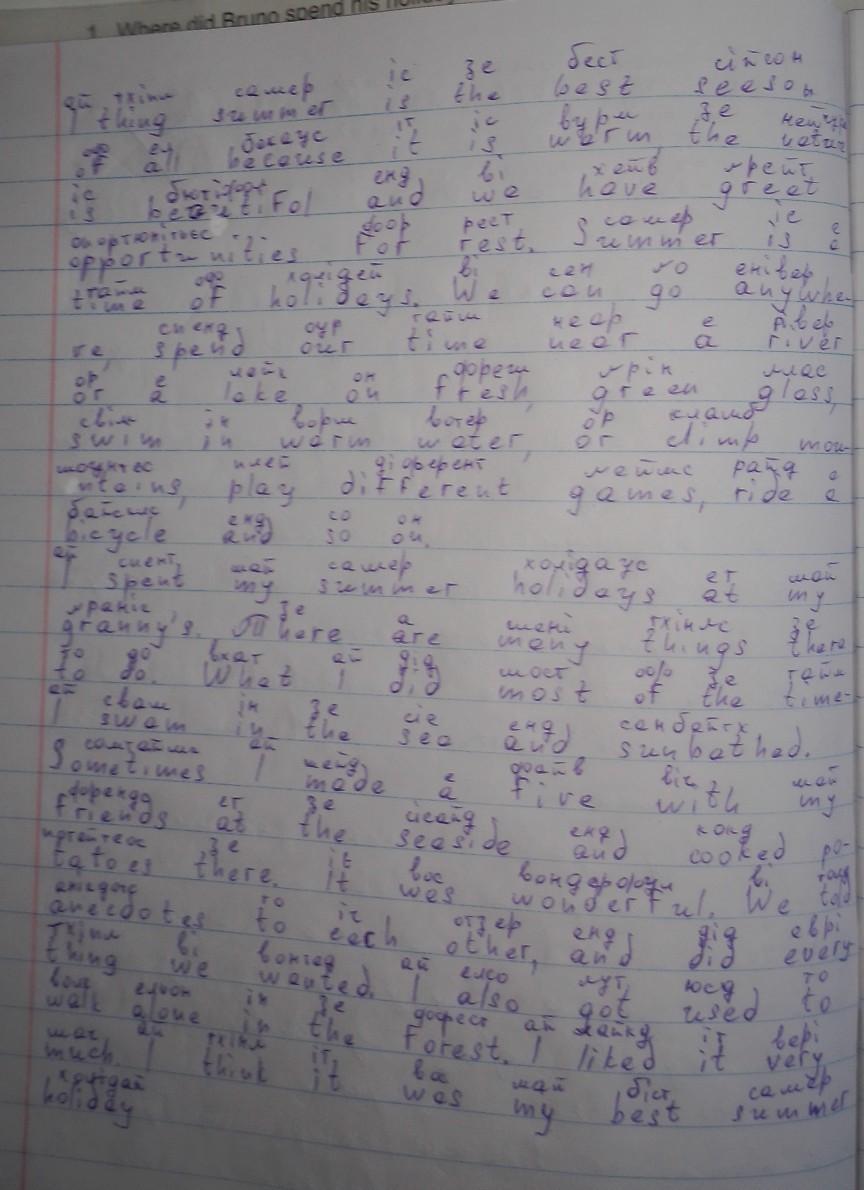 1. Where did Bruno spend his holiday
ай тхінк самер іс зе бест сітсон
I thing summer is the best seeson
оф ел бекаус іт іс вурм зе нейчур
of all because it is warm, the natur
іс бютіфол енд ві хейв грейт
is beautifol and we have great
опортюнітіес фоор рест самер іс е
opportunities for rest. Summer is a
тайм оф холідей ві кен го енівер
time of holidays. We can go anywhe-
спенд оур тайм неар е рівер
re, spend our time near a river
ор е лейк он фореш грін глас
or a lake on fresh, green glass,
свім ін ворм вотер ор клаімб
swim in warm water, or climp mou-
моунтес плей діферент геймс райд е
ntains, play different games, ride a
байсікс енд со он
bicycle and so on.
ай спент май самер холідаус ет май
I spent my summer holidays at my
граніс зе а мені тхінгс зе
granny's. There are many things there
то до вхат ай дід мост оф зе тайм
to do. What I did most of the time-
ай свам ін зе сіе енд санбайтх
I swam in the sea and sunbathed.
сомтаймс ай мейд е файв віч май
Sometimes I made a five with my
форендд ет зе сісайд енд кокд
friends at the seaside and cooked po-
зе іт вос вондерфул ві толд
tatoes there. It was wonderful. We told
анікдотс то іч отзер енд дід еврі
anecdotes to each other, and did every
тхінг ві вонтед ай елсо гут юсд то
thing we wanted. I also got used to
волк елон ін зе форест ай лайкд іт вері
walk alone in the forest. I liked it very
мач ай тхінк іт вос май біст самер
much I think it was my best summer
холідай
holiday